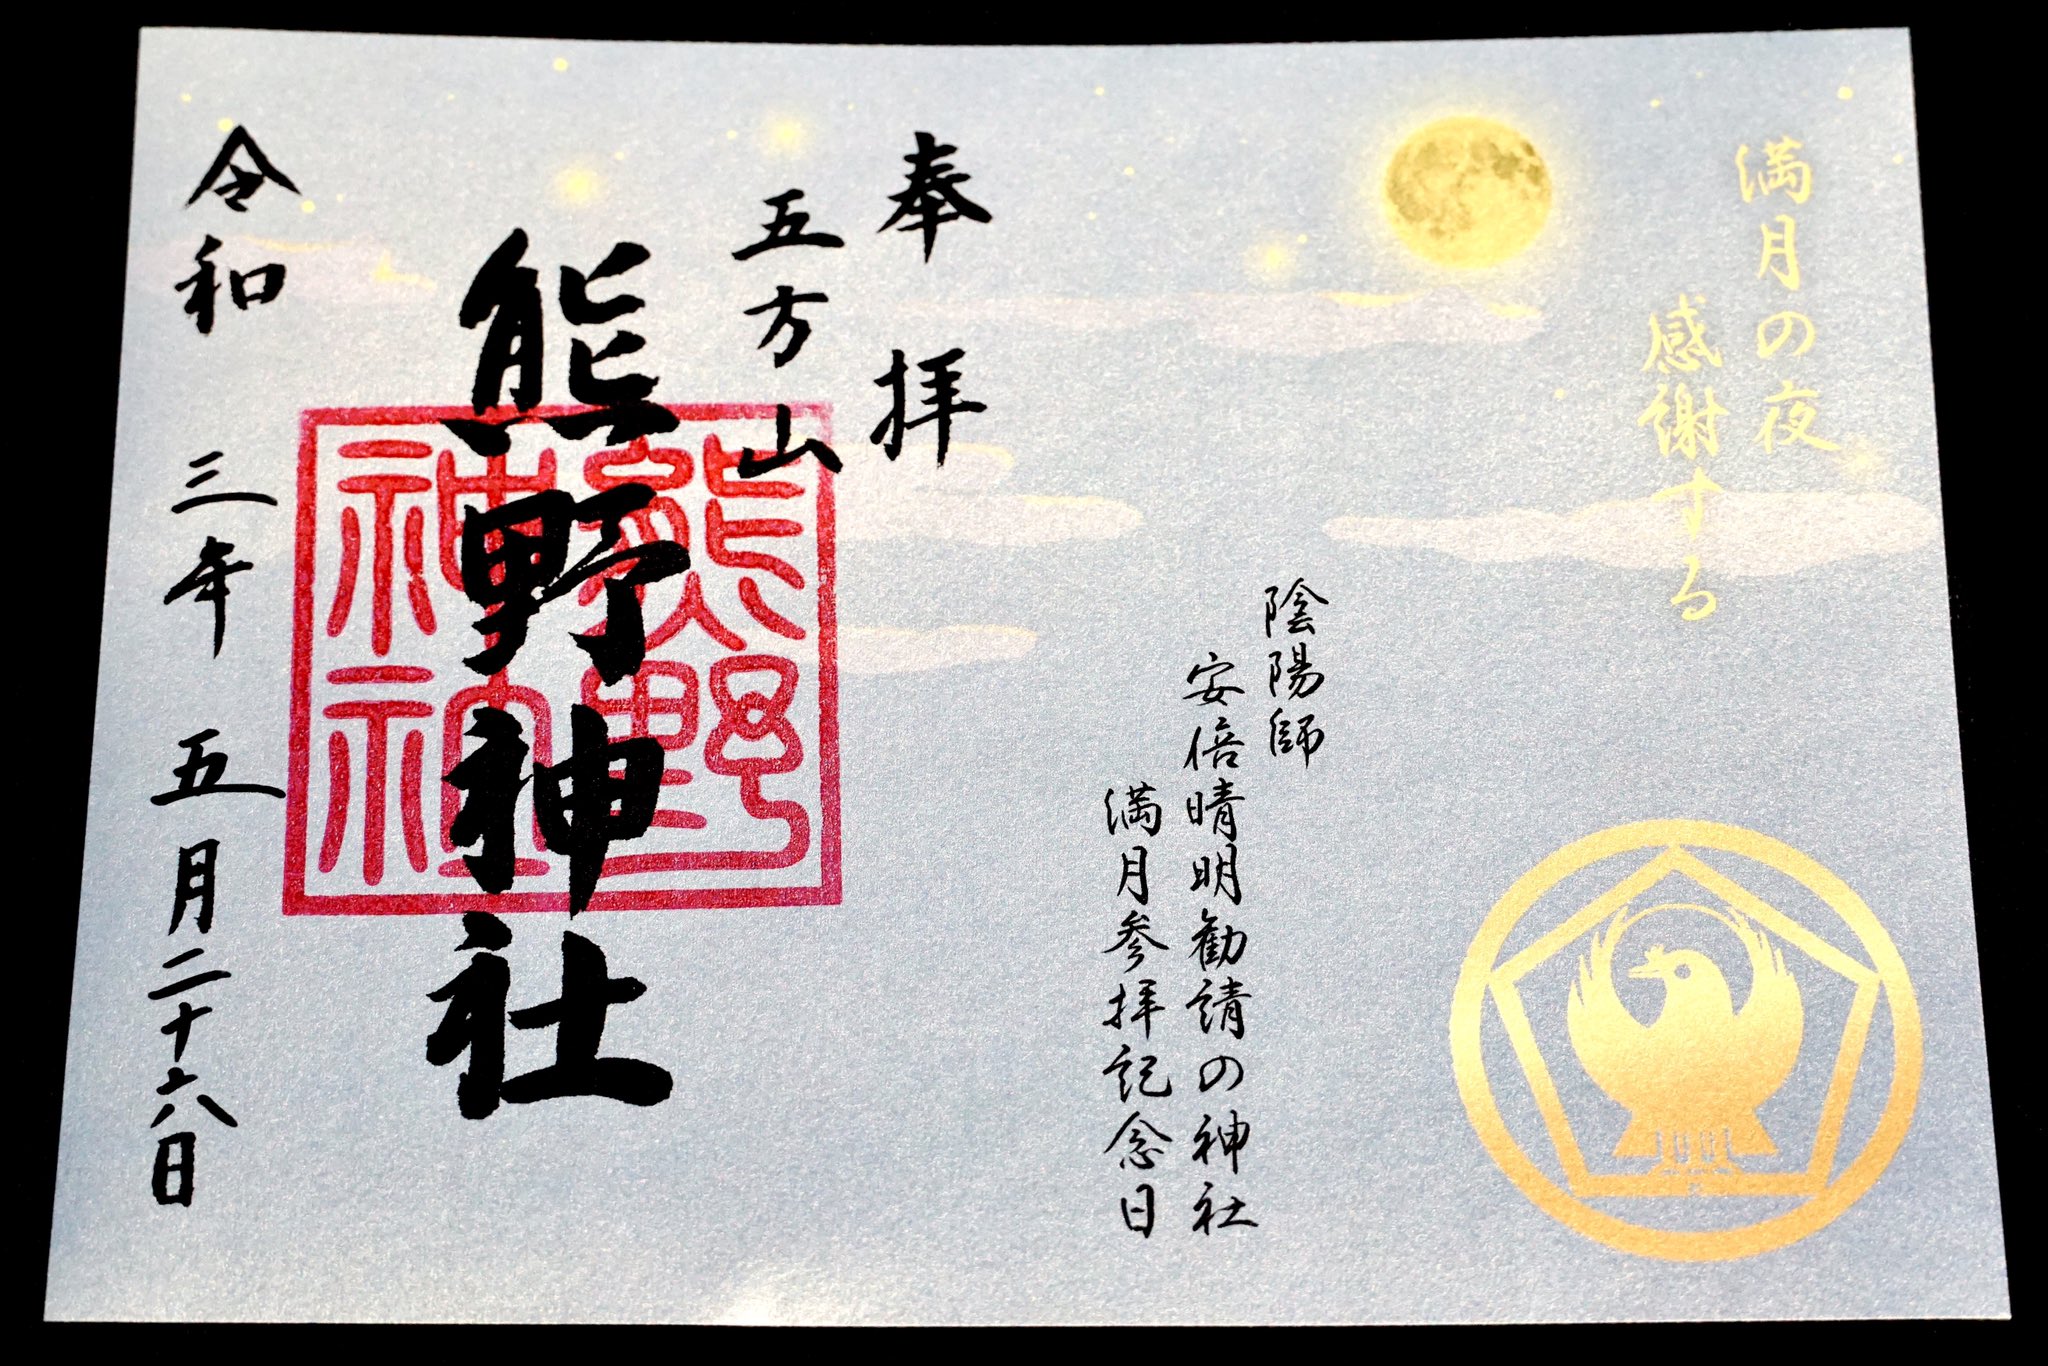 満月の夜
感謝する
陰陽師
安倍晴明勧請の神社
満月参拝記念日
奉拝
五方山
熊野神社
熊野
神社
令和三年五月二十六日